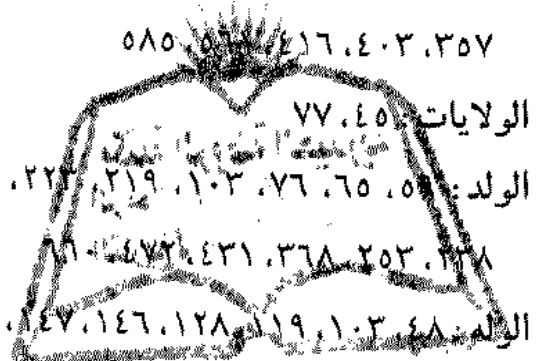 ٣٥٧، ٤٠٣، ٤١٦، ٥٦٤، ٥٨٥
الولايات: ٤٥، ٧٧
الولد: ٦٥، ٧٦، ١٠٣، ٢١٩، ٢٢٣،
٢٥٣، ٣٦٨، ٤٣١، ٤٧٢
الوله: ٤٨، ١٠٣، ١١٩، ١٢٨، ١٤٦، ١٤٧،